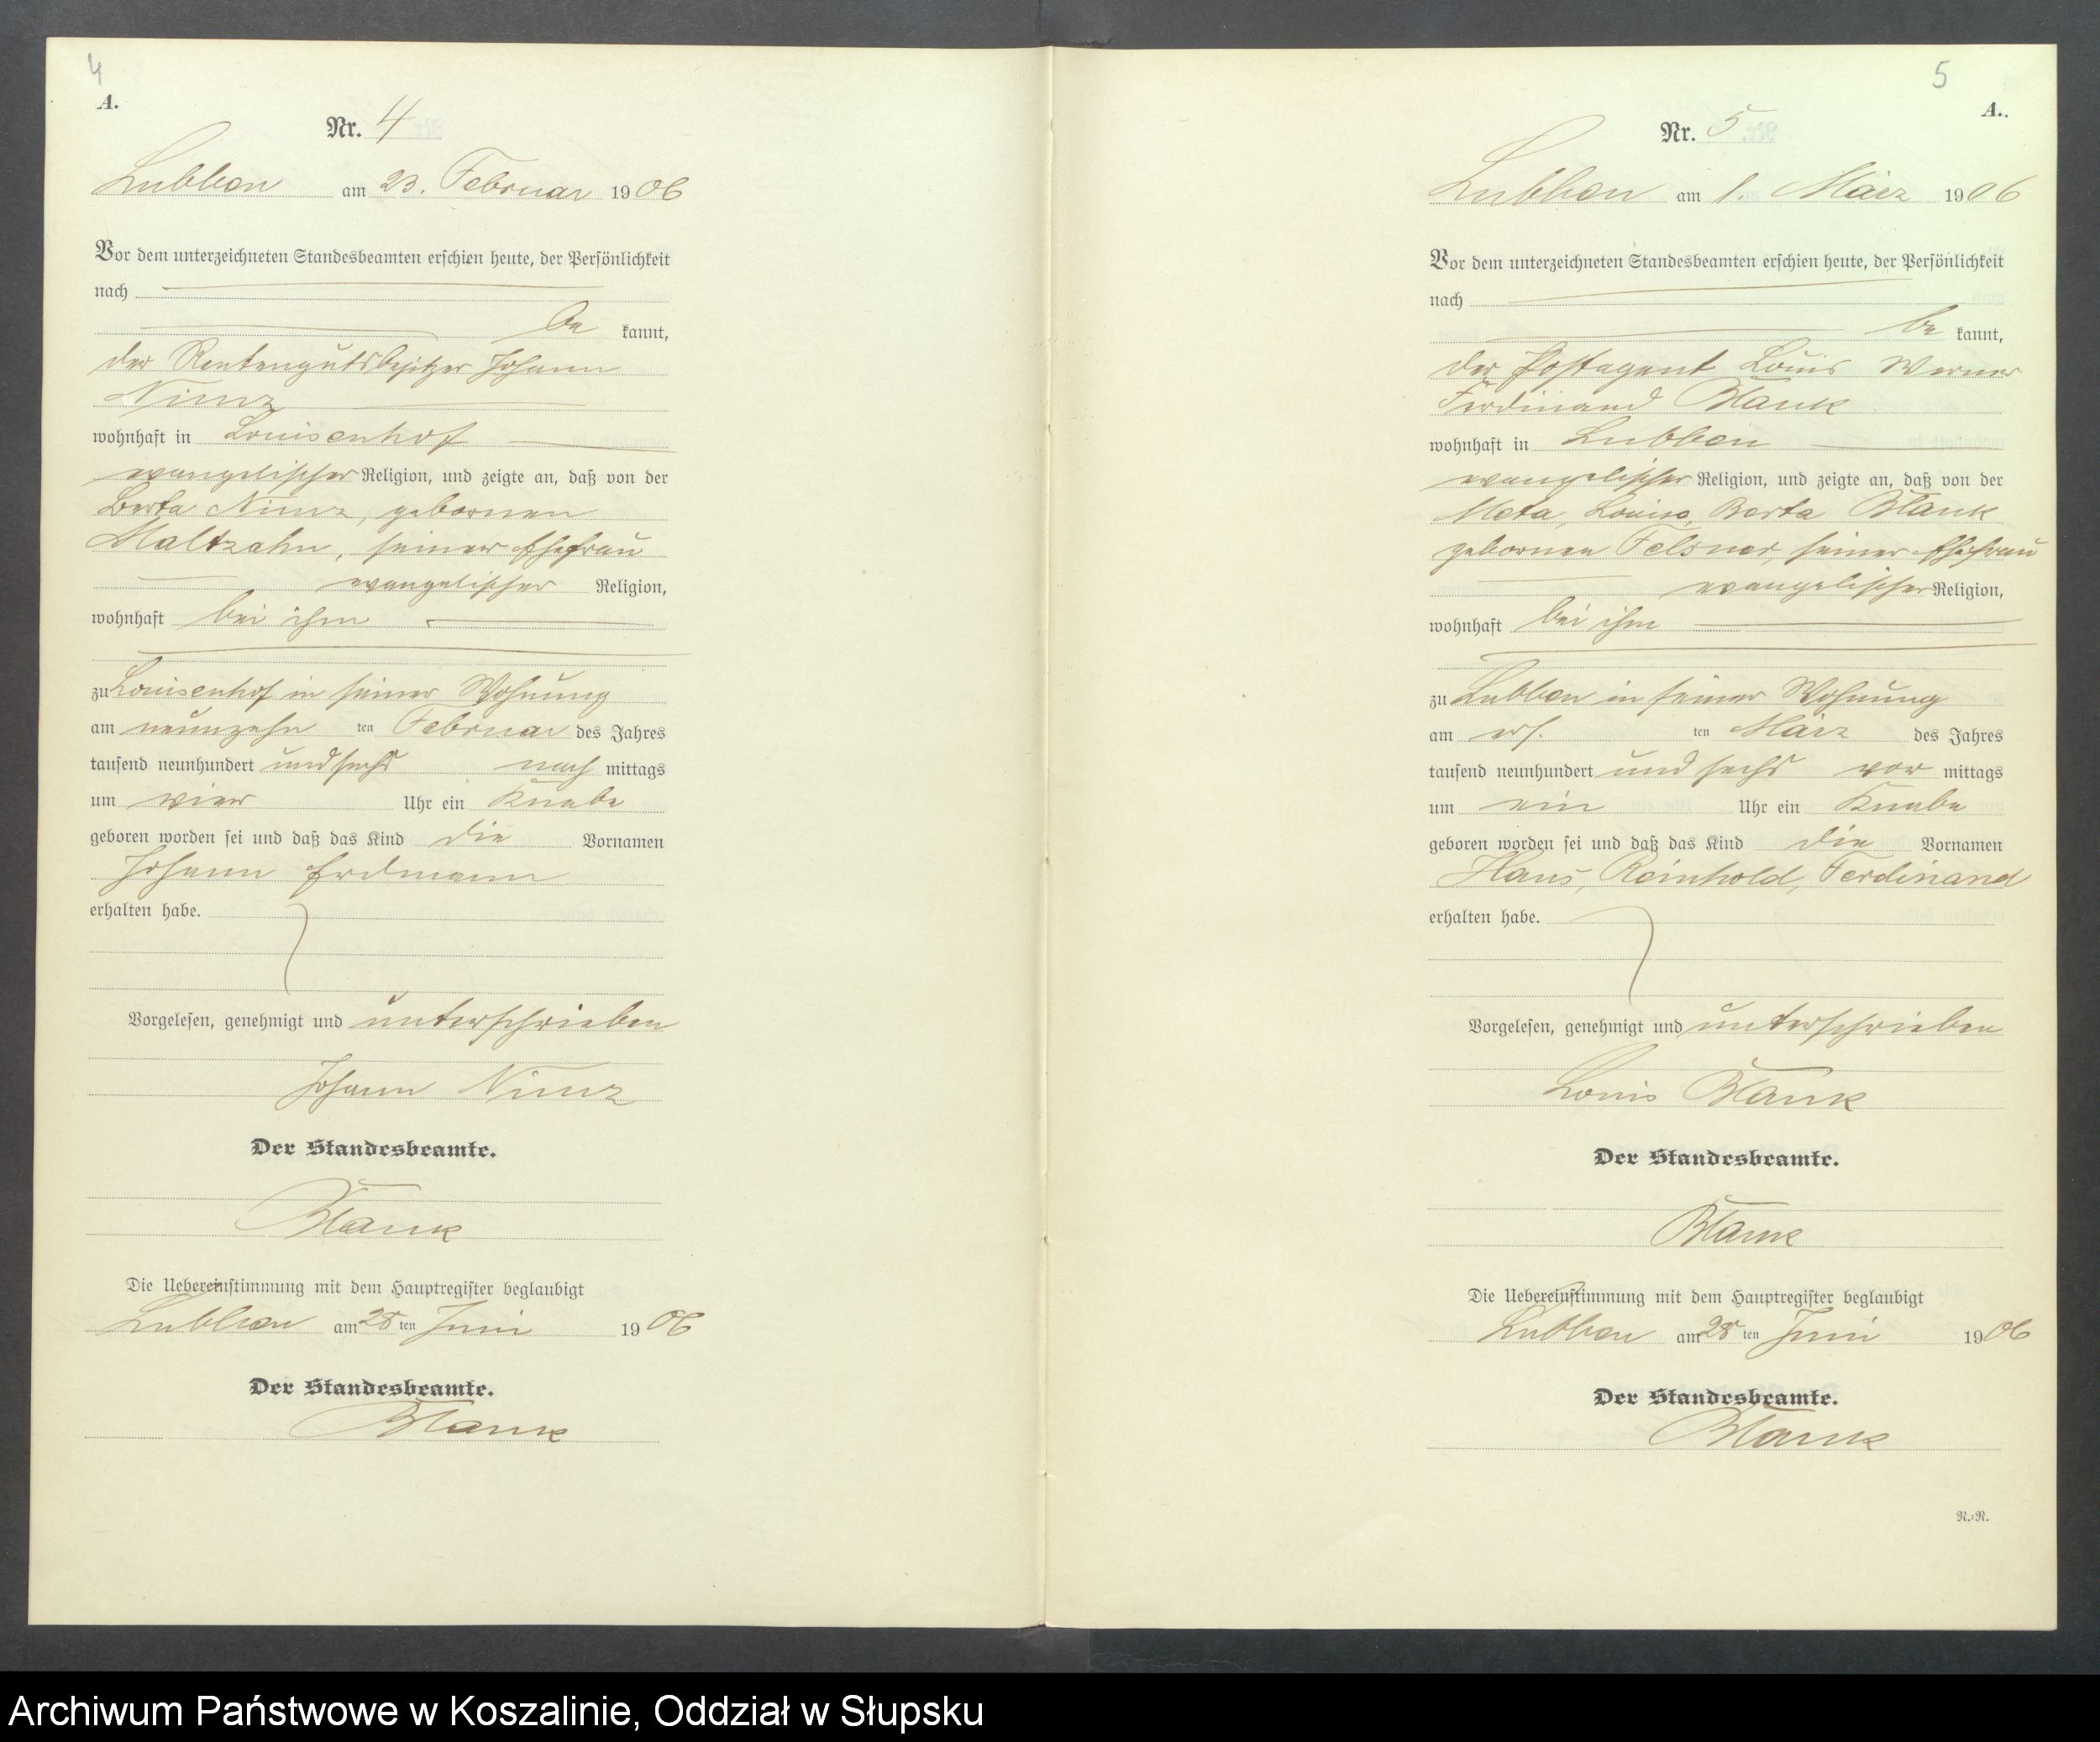 4
A.
Nr. 4
Lubben am 23. Februar 1906
Vor dem unterzeichneten Standesbeamten erschien heute, der Persönlichkeit
nach
be kannt,
der Rentengutsbesitzer Johann
Nimz
wohnhaft in Louisenhof
evangelischer Religion, und zeigte an, daß von der
Berta Nimz, gebornen
Maltzahn, seiner Ehefrau
evangelischer Religion,
wohnhaft bei ihm
zu Louisenhof in seiner Wohnung
am neunzehn ten Februar des Jahres
tausend neunhundert und sechs nach mittags
um vier Uhr ein Knabe
geboren worden sei und daß das Kind die Vornamen
Johann Erdmann
erhalten habe.
Vorgelesen, genehmigt und unterschrieben
Johann Nimz
Der Standesbeamte.
Blank
Die Uebereinstimmung mit dem Hauptregister beglaubigt
Lubben am 28 ten Juni 1906
Der Standesbeamte.
Blank
5
A.
Nr. 5
Lubben am 1. März 1906
Vor dem unterzeichneten Standesbeamten erschien heute, der Persönlichkeit
nach
be kannt,
der Postagent Louis Werner
Ferdinand Blank
wohnhaft in Lubben
evangelischer Religion, und zeigte an, daß von der
Meta, Louise, Berta Blank
gebornen Felsner, seiner Ehefrau
evangelischer Religion,
wohnhaft bei ihm
zu Lubben in seiner Wohnung
am ers. ten März des Jahres
tausend neunhundert und sechs vor mittags
um ein Uhr ein Knabe
geboren worden sei und daß das Kind die Vornamen
Hans, Reinhold, Ferdinand
erhalten habe.
Vorgelesen, genehmigt und unterschrieben
Louis Blank
Der Standesbeamte.
Blank
Die Uebereinstimmung mit dem Hauptregister beglaubigt
Lubben am 28 ten Juni 1906
Der Standesbeamte.
Blank
N.=N.
Archiwum Państwowe w Koszalinie, Oddział w Słupsku